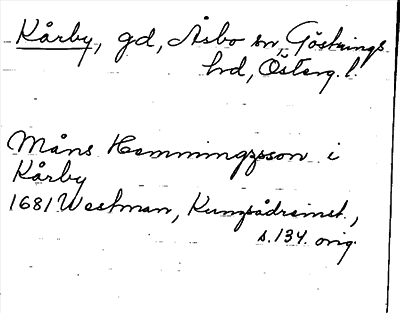 Kårby, gd, Åsbo sn, Göstrings
hrd, Österg. l.
Måns Hemmingsson i
Kårby
1681 Westman, Kungsådreinst.,
s. 134. orig.